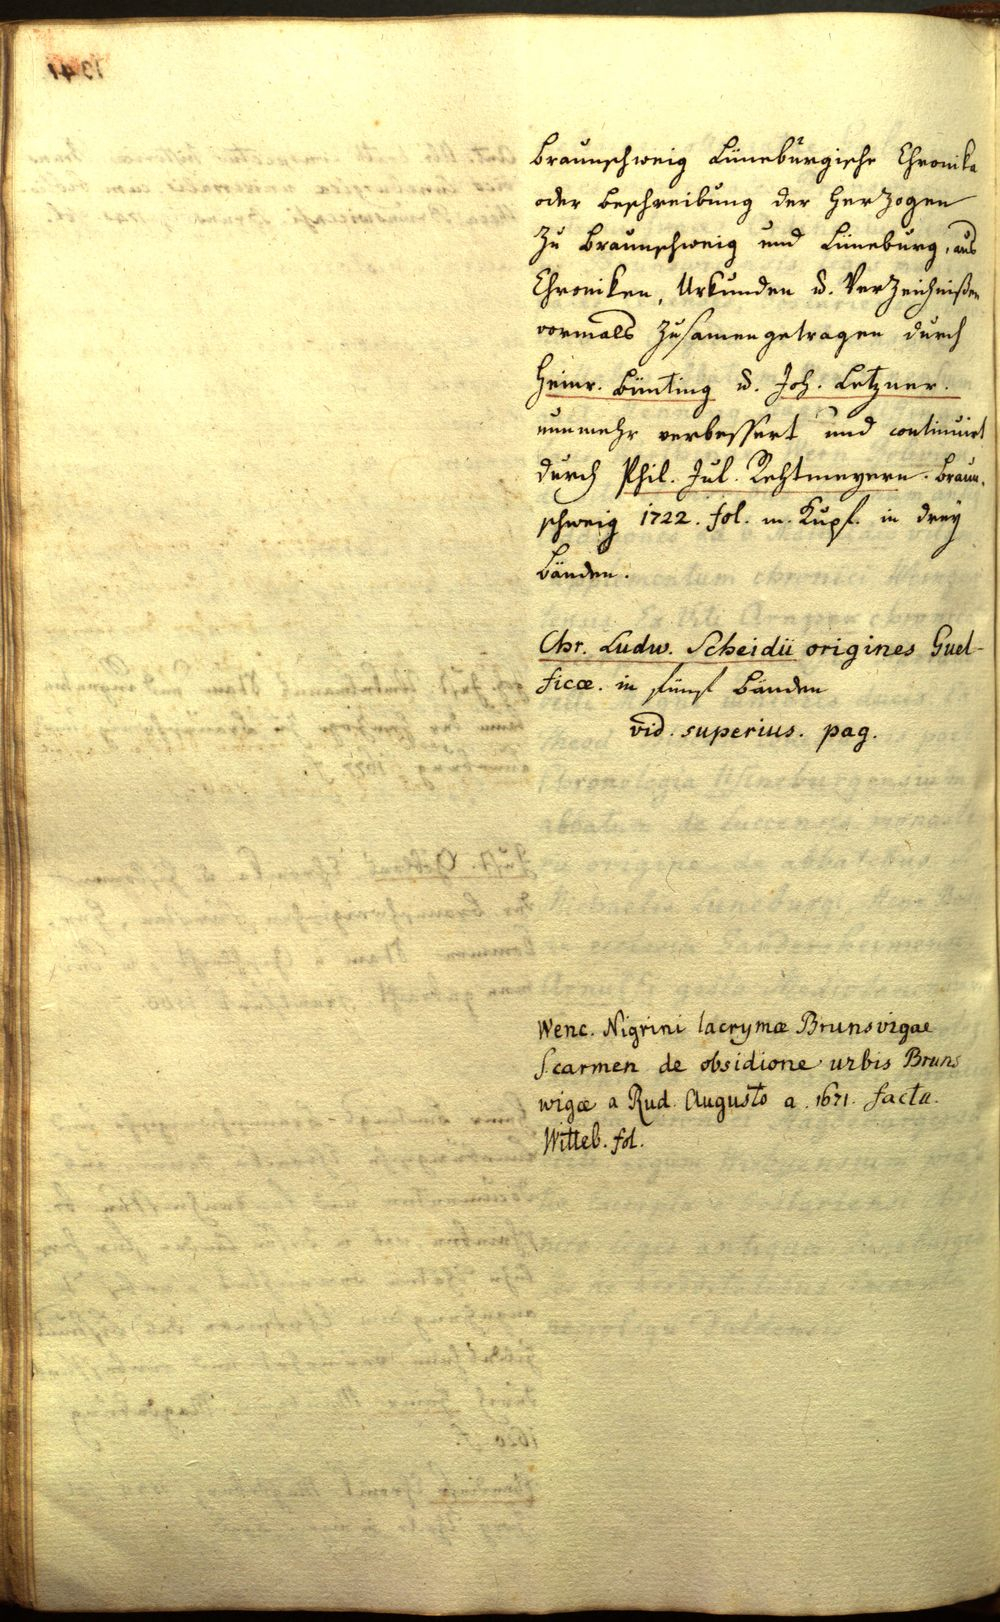 Braunschweig Lüneburgische Chronika
oder Beschreibung der Herzogen
zu Braunschweig und Lüneburg, aus
Chroniken, Urkunden u. Verzeichnißen
vormals zusamengetragen durch
Heinr. Bünting u. Joh. Letzner.
nunmehr verbessert und continuirt
durch Phil. Jul. Rehtmeyern. Braun-
schweig 1722. fol. m. Kupf. in drey
Bänden.
Chr. Ludw. Scheidii origines Guel-
ficæ. in fünf Bänden
vid. superius. pag.
Wenc. Nigrini lacrymæ Brunsvigae
s. carmen de obsidione urbis Bruns
wigæ a Rud. Augusto a. 1671. facta.
Witteb. fol.